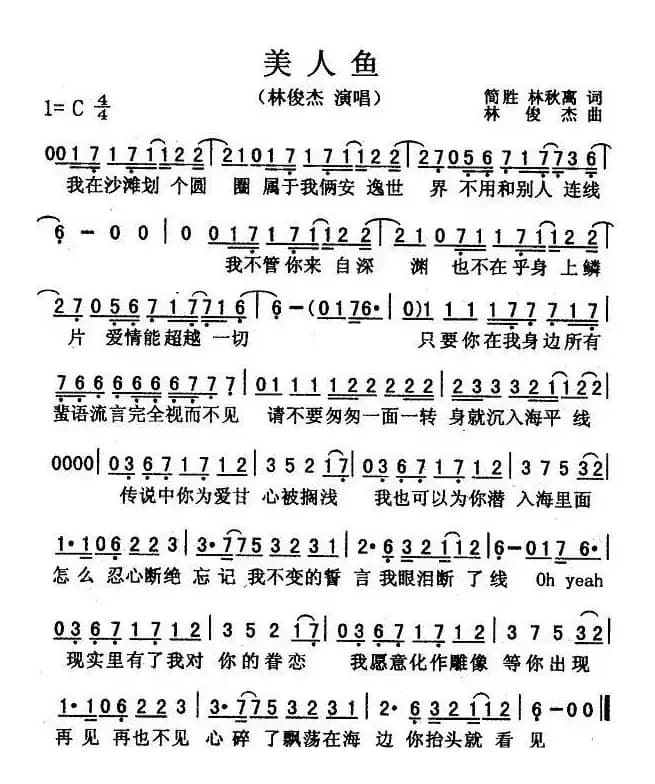 美人鱼
（林俊杰 演唱）
1= C 4/4
简胜 林秋离 词
林 俊 杰 曲
0017171122 | 210171711122 | 2705671 7736 |
我在沙滩划 个圆 圈 属于我俩安 逸世 界 不用和别人 连线
6 – 0 0 | 0 01717 1122 | 2107171 1122 |
我不管你来 自深 渊 也不在乎身 上鳞
27056717716 | 6 –（0176· | 0）1 1 177 7717 |
片 爱情能超越 一切 只要你在我身边所有
7666666777 | 0111122222 | 2333321122 |
蜚语流言完全视而不见 请不要匆匆一面一转 身就沉入海平 线
0000 | 03671712 | 3 5 2 17 | 03671712 | 3 7 5 32 |
传说中你为爱甘 心被搁浅 我也可以为你潜 入海里面
1·106223 | 3·7753231 | 2·632112 | 6–017 6· |
怎么 忍心断绝 忘记 我不变的誓 言我眼泪断 了线 Oh yeah
03671712 | 3 5 2 17 | 03671712 | 3 7 5 32 |
现实里有了我对 你的眷恋 我愿意化作雕像 等你出现
1·106223 | 3·7753231 | 2·632112 | 6–00 ‖
再见 再也不见 心碎 了飘荡在海 边你抬头就 看 见